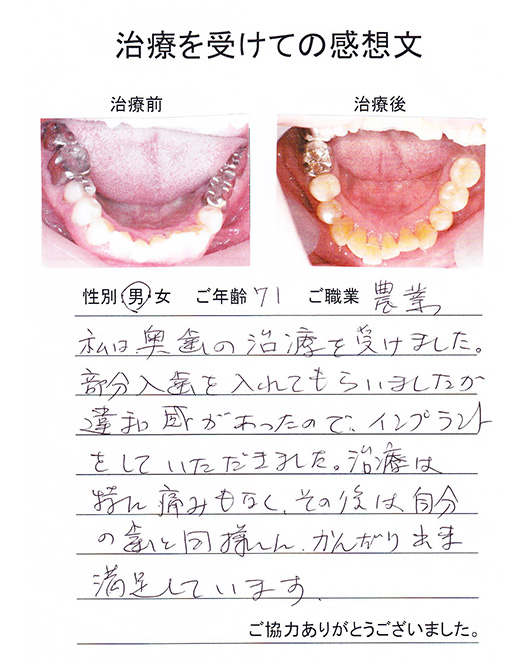 治療を受けての感想文
治療前
治療後
性別 男・女 ご年齢 71 ご職業 農業
私は奥歯の治療を受けました。
部分入歯を入れてもらいましたが
違和感があったので、インプラント
をしていただきました。治療は
特に痛みもなく、その後は自分
の歯と同様に、かんだり出来
満足しています。
ご協力ありがとうございました。